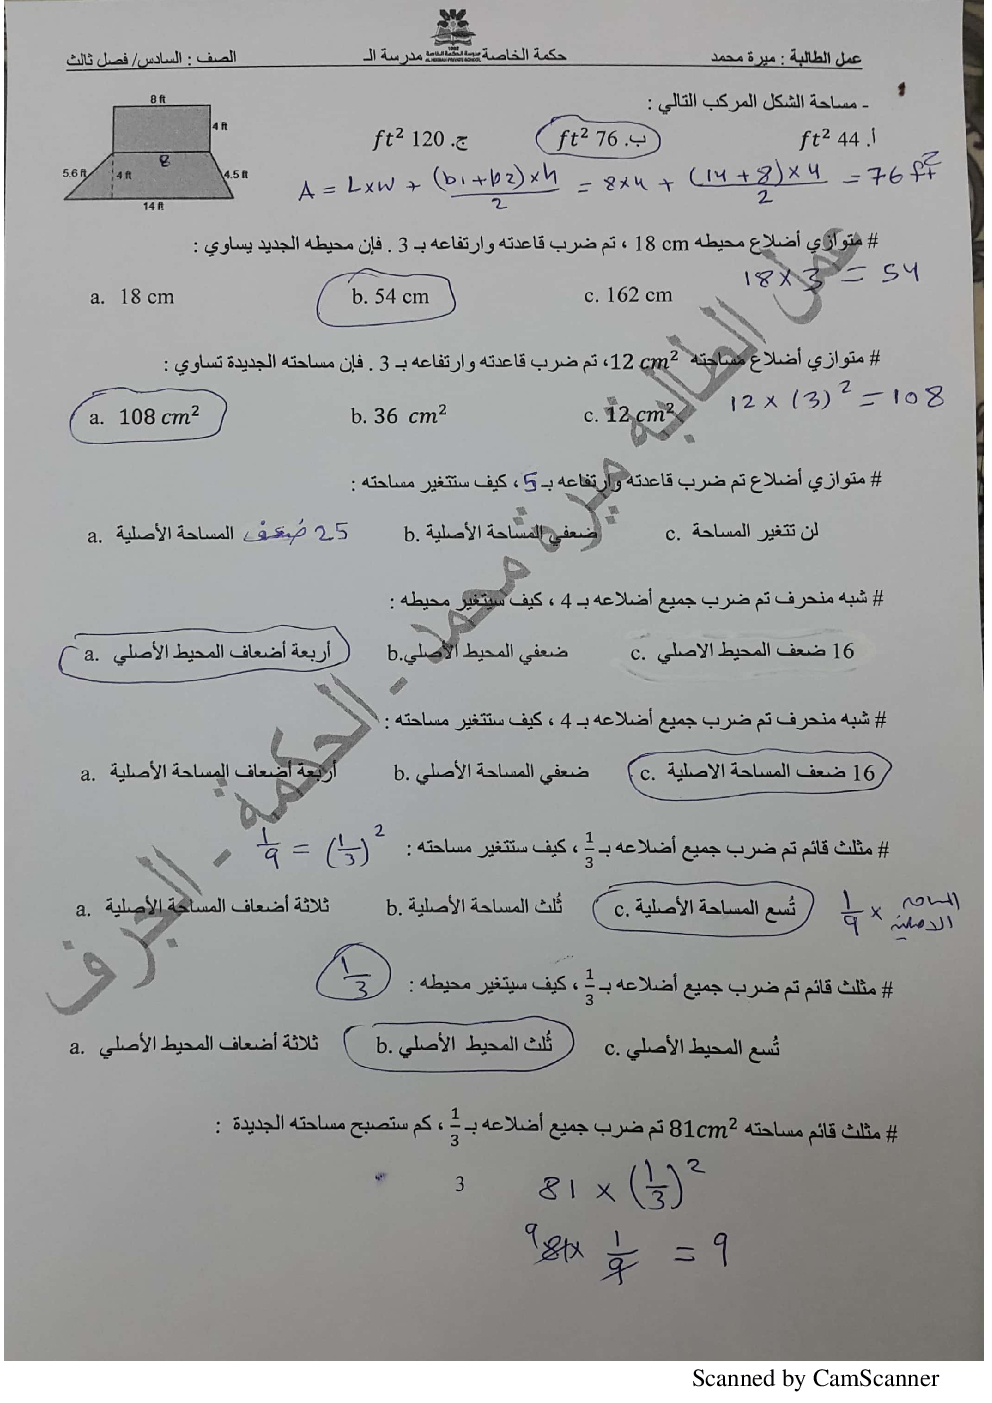 عمل الطالبة : ميرة محمد
مدرسة الـحكمة الخاصة
الصف : السادس/ فصل ثالث
1862
AL HEKMAH PRIVATE SCHOOL
- مساحة الشكل المركب التالي :
8 ft
4 ft
8
5.6 ft
4 ft
4.5 ft
14 ft
أ. 44 ft²
ب. 76 ft²
ج. 120 ft²
A = L x W + (b1 + b2) x h / 2 = 8 x 4 + (14 + 8) x 4 / 2 = 76 ft²
# متوازي أضلاع محيطه 18 cm ، تم ضرب قاعدته وارتفاعه بـ 3 . فإن محيطه الجديد يساوي :
18 x 3 = 54
a. 18 cm b. 54 cm c. 162 cm
# متوازي أضلاع مساحته 12 cm² ، تم ضرب قاعدته وارتفاعه بـ 3 . فإن مساحته الجديدة تساوي :
12 x (3)² = 108
a. 108 cm² b. 36 cm² c. 12 cm²
# متوازي أضلاع تم ضرب قاعدته وارتفاعه بـ 5 ، كيف ستتغير مساحته :
a. 25 ضعف المساحة الأصلية b. ضعفي المساحة الأصلية c. لن تتغير المساحة
# شبه منحرف تم ضرب جميع أضلاعه بـ 4 ، كيف سيتغير محيطه :
a. أربعة أضعاف المحيط الأصلي b. ضعفي المحيط الأصلي c. 16 ضعف المحيط الاصلي
# شبه منحرف تم ضرب جميع أضلاعه بـ 4 ، كيف ستتغير مساحته :
a. أربعة أضعاف المساحة الأصلية b. ضعفي المساحة الأصلي c. 16 ضعف المساحة الاصلية
# مثلث قائم تم ضرب جميع أضلاعه بـ 1/3 ، كيف ستتغير مساحته :
(1/3)² = 1/9
a. ثلاثة أضعاف المساحة الأصلية b. ثُلث المساحة الأصلية c. تُسع المساحة الأصلية
1/9 x المساحة الاصلية
# مثلث قائم تم ضرب جميع أضلاعه بـ 1/3 ، كيف سيتغير محيطه :
1/3
a. ثلاثة أضعاف المحيط الأصلي b. ثُلث المحيط الأصلي c. تُسع المحيط الأصلي
# مثلث قائم مساحته 81cm² تم ضرب جميع أضلاعه بـ 1/3 ، كم ستصبح مساحته الجديدة :
3
81 x (1/3)²
9 81 x 1/9 = 9
عمل الطالبة ميرة محمد - الحكمة - الجرف
Scanned by CamScanner